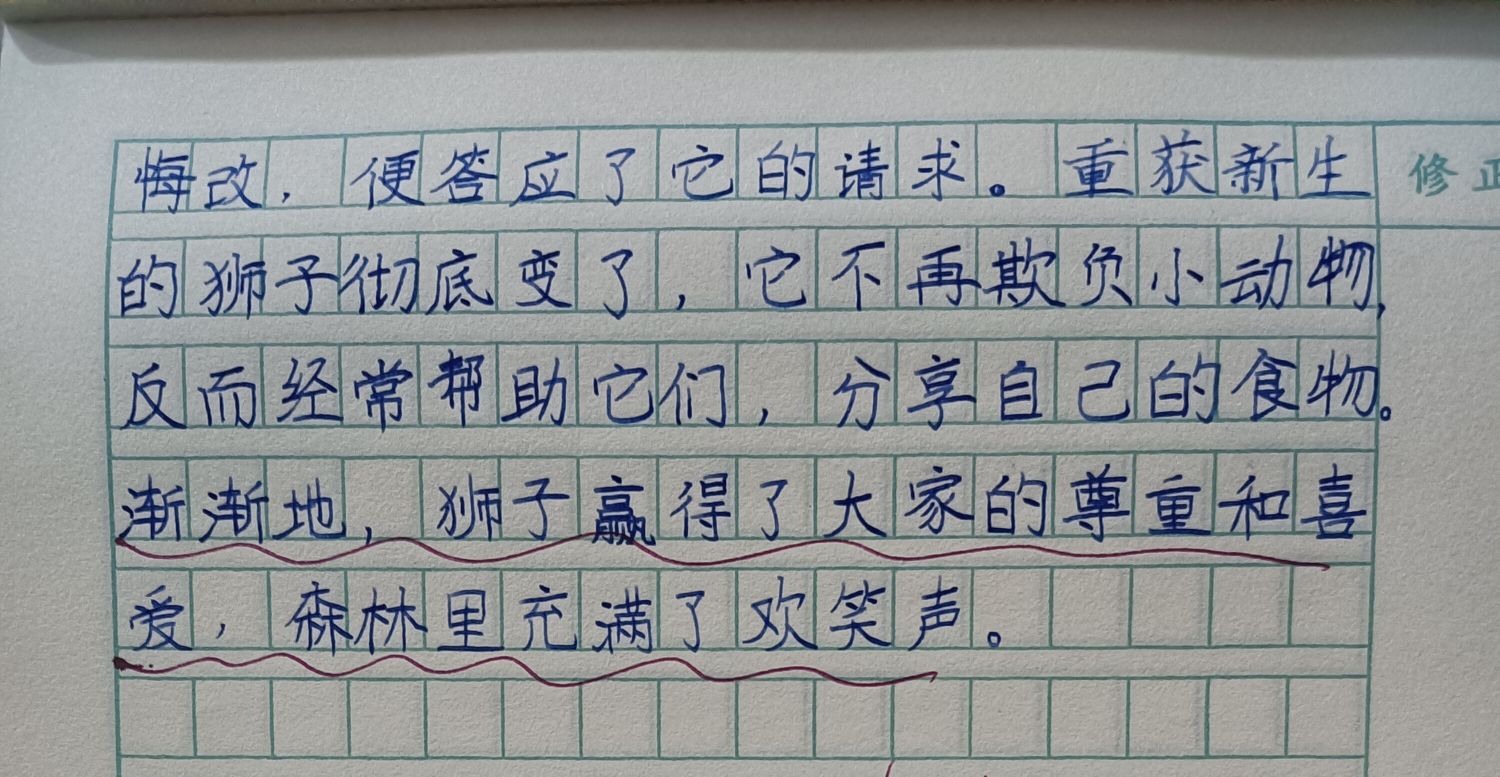 悔改，便答应了它的请求。重获新生
修正
的狮子彻底变了，它不再欺负小动物，
反而经常帮助它们，分享自己的食物。
渐渐地，狮子赢得了大家的尊重和喜
爱，森林里充满了欢笑声。